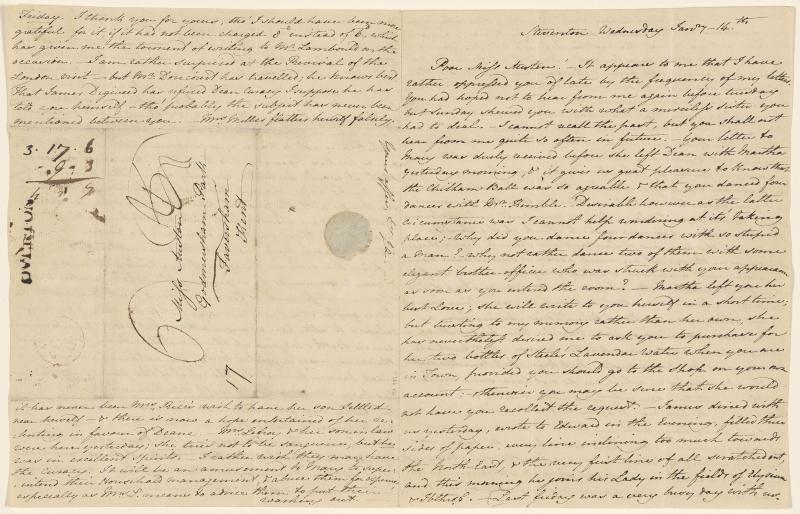 Friday. I thank you for yours, tho' I should have been more
grateful for it, if it had not been charged 8d instead of 6d, which
has given me the torment of writing to Mr. Lambould on the
occasion. – I am rather surprised at the Revival of the
London visit – but Mr. Doricourt has travelled; he knows best.
That James Digweed has refused Dean Curacy I suppose he has
told you himself – tho' probably the subject has never been
mentioned between you. – Mrs. Milles flatters herself falsely,
3. 17. 6
OVERTON
Miss Austen
Godmersham Park
Faversham
Kent
17
it has never been Mrs. Rice's wish to have her son settled
near herself – & there is now a hope entertained of her re-
lenting in favour of Deane. – Mrs. Lefroy & her son in law
were here yesterday; she tries not to be sanguine, but he
was in excellent Spirits. – I rather wish they may have
the Curacy. It will be an amusement to Mary to super-
intend their Household management, & abuse them for expense,
especially as Mrs. L. means to advise them to put their
washing out. –
Steventon Wednesday Janry – 14th
Poor Miss Austen! – It appears to me that I have
rather oppressed you of late by the frequency of my letters.
You had hoped not to hear from me again before tuesday,
but Sunday shewed you with what a merciless sister you
had to deal. – I cannot recall the past, but you shall not
hear from me quite so often in future. – Your letter to
Mary was duly received before she left Dean with Martha
yesterday morning, & it gives us great pleasure to know that
the Chilham Ball was so agreable & that you danced four
dances with Mr. Kemble. – Desirable however as the latter
circumstance was I cannot help wondering at its taking
place; – Why did you dance four dances with so stupid
a Man? – why not rather dance two of them with some
elegant brother-officer who was struck with your appearance
as soon as you entered the room? – Martha left you her
best Love; she will write to you herself in a short time;
but trusting to my memory rather than her own, she
has nevertheless desired me to ask you to purchase for
her two bottles of Steele's Lavender Water when you are
in Town, provided you should go to the Shop on your own
account; – otherwise you may be sure that she would
not have you recollect the request. – James dined with
us yesterday, wrote to Edward in the evening, filled three
sides of paper, every line inclining too much towards
the North-East, & the very first line of all scratched out,
and this morning he joins his Lady in the fields of Elysium
& Ibthrop. – Last friday was a very busy day with us.